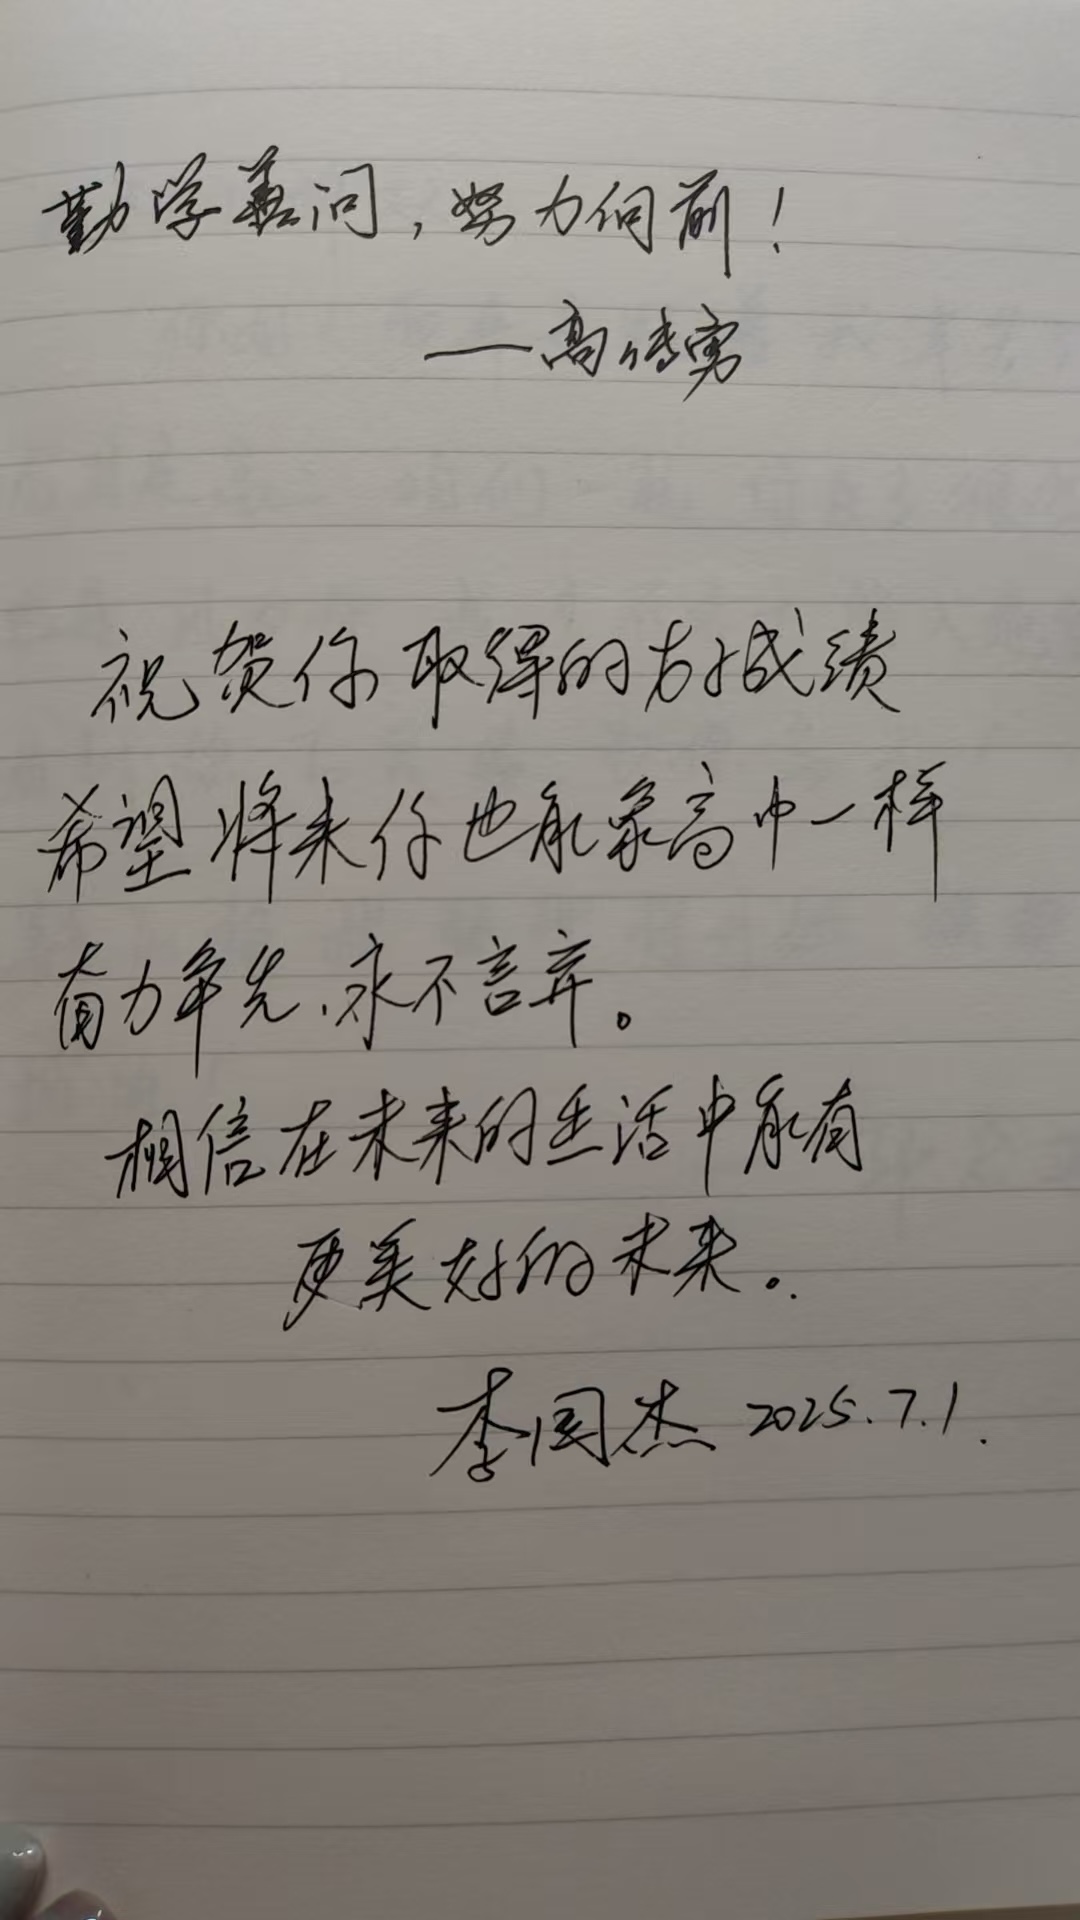 勤学善问，努力向前！
——高传勇
祝贺你取得的好成绩
希望将来你也能象高中一样
奋力争先、永不言弃。
相信在未来的生活中能有
更美好的未来。
李国杰 2025.7.1.